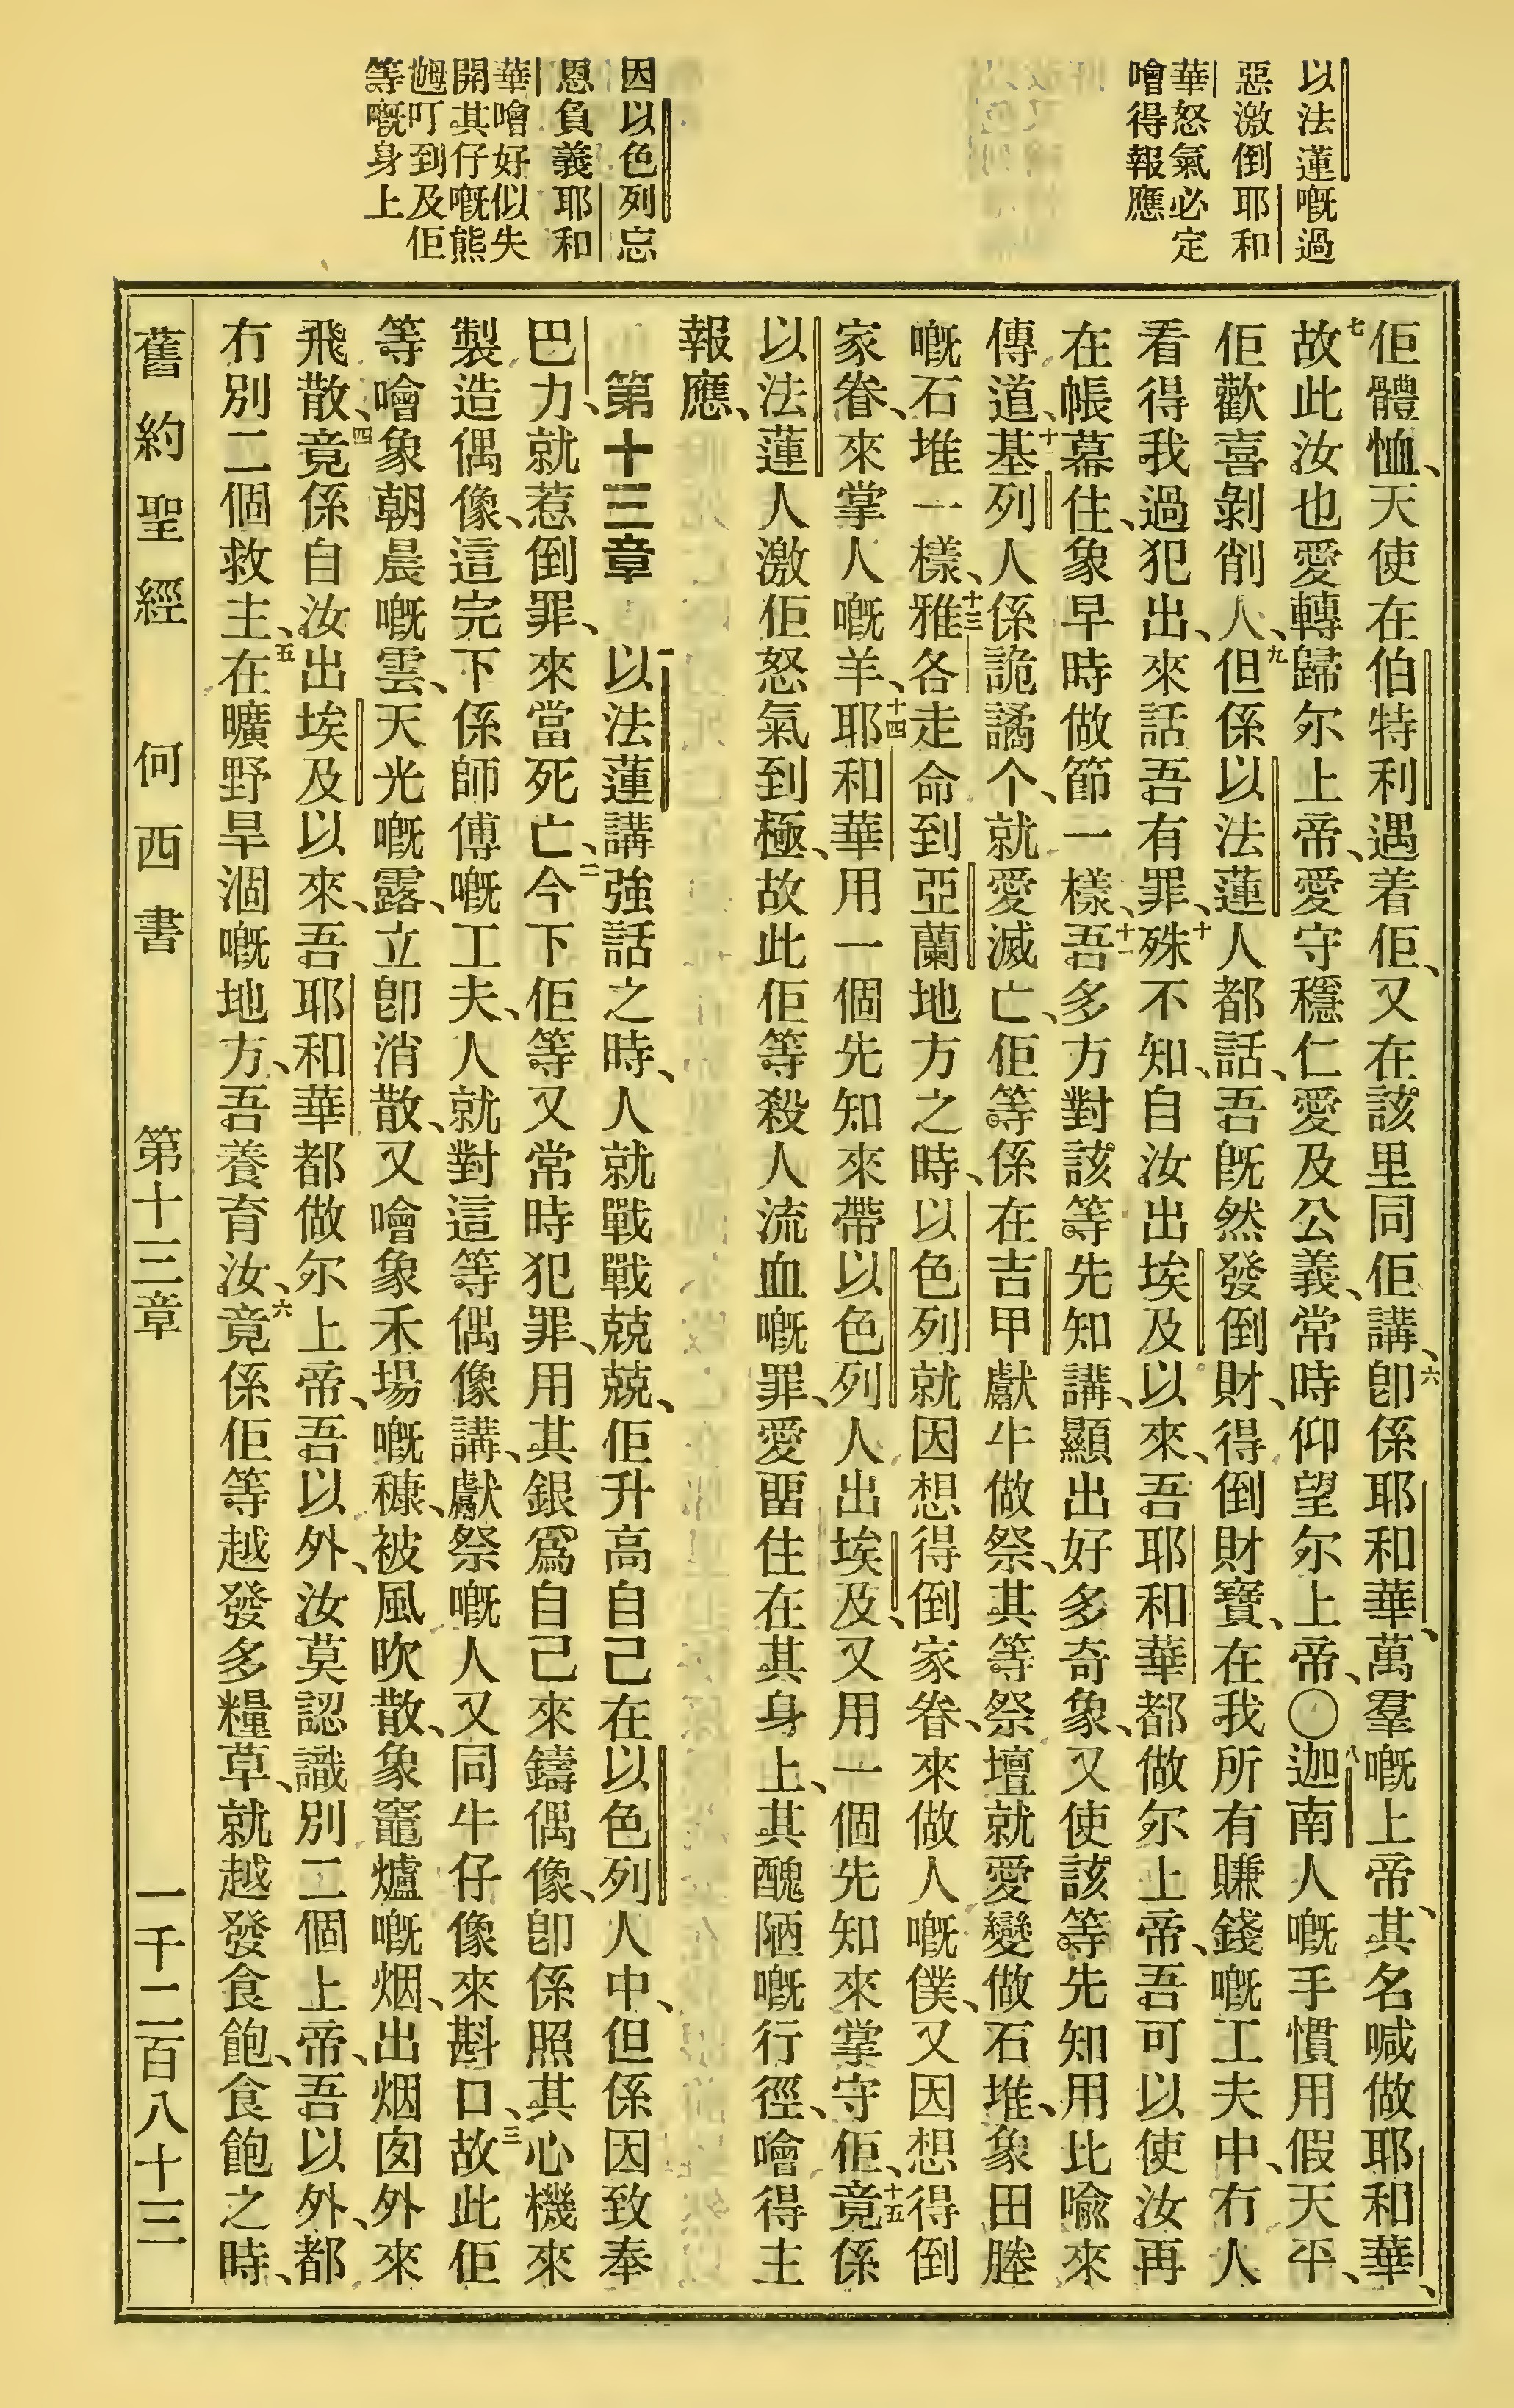 以法蓮嘅過
惡激倒耶和
華怒氣必定
噲得報應
因以色列忘
恩負義耶和
華噲好似失
開其仔嘅熊
乸叮到及佢
等嘅身上
佢體恤、天使在伯特利遇着佢、又在該里同佢講、六卽係耶和華、萬羣嘅上帝、其名喊做耶和華、
七故此汝也愛轉歸尓上帝、愛守穩仁愛及公義、常時仰望尓上帝、〇八迦南人嘅手慣用假天平、
佢歡喜剝削人、九但係以法蓮人都話、吾旣然發倒財、得倒財寶、在我所有賺錢嘅工夫中、冇人
看得我過犯出、來話吾有罪、十殊不知、自汝出埃及以來、吾耶和華都做尓上帝、吾可以使汝再
在帳幕住、象早時做節一樣、十一吾多方對該等先知講、顯出好多奇象、又使該等先知用比喩來
傳道、十二基列人係詭譎个、就愛滅亡、佢等係在吉甲獻牛做祭、其等祭壇就愛變做石堆、象田塍
嘅石堆一樣、十三雅各走命到亞蘭地方之時、以色列就因想得倒家眷、來做人嘅僕、又因想得倒
家眷、來掌人嘅羊、十四耶和華用一個先知來帶以色列人出埃及、又用一個先知來掌守佢、十五竟係
以法蓮人激佢怒氣到極、故此佢等殺人流血嘅罪、愛畱住在其身上、其醜陋嘅行徑、噲得主
報應、
第十三章 一以法蓮講強話之時、人就戰戰兢兢、佢升高自己在以色列人中、但係因致奉
巴力、就惹倒罪、來當死亡、二今下佢等又常時犯罪、用其銀爲自己來鑄偶像、卽係照其心機來
製造偶像、這完下係師傅嘅工夫、人就對這等偶像講、獻祭嘅人又同牛仔像來斟口、三故此佢
等噲象朝晨嘅雲、天光嘅露、立卽消散、又噲象禾場嘅糠、被風吹散、象竈爐嘅烟、出烟囪外來
飛散、四竟係自汝出埃及以來、吾耶和華都做尓上帝、吾以外、汝莫認識別二個上帝、吾以外、都
冇別二個救主、五在曠野旱涸嘅地方、吾養育汝、六竟係佢等越發多糧草、就越發食飽、食飽之時、
舊約聖經 何西書 第十三章 一千二百八十三